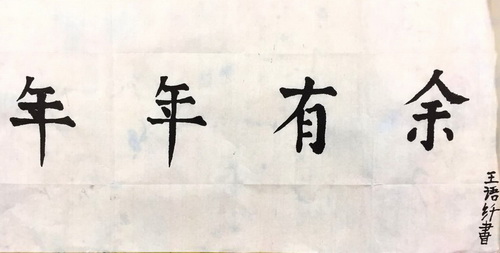 年年有余
王语纤書